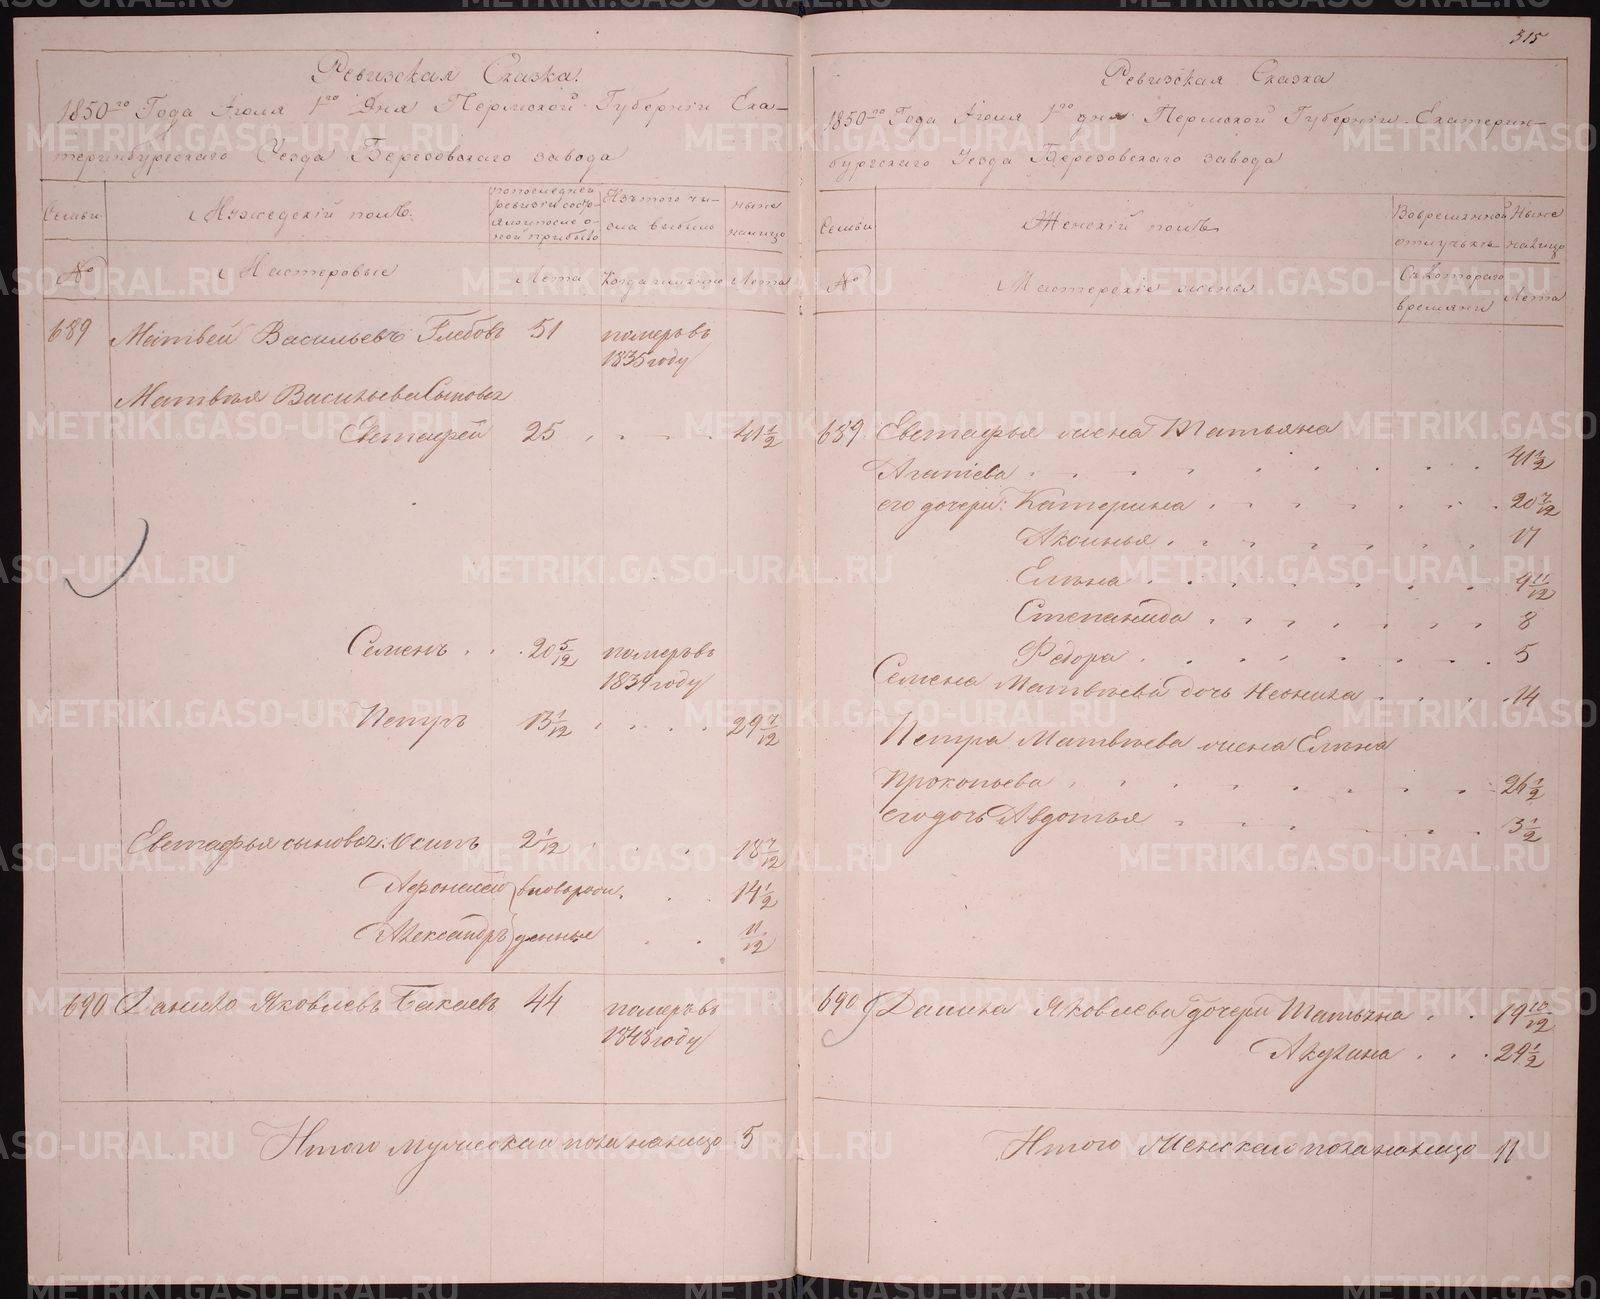 Ревизская Сказка.
1850го Года Іюля 1го Дня Пермской Губерніи Ека-
теринбургского Уезда Березовского завода
Семьи
Мужеский полъ.
попоследней
ревизіи состо-
яло ипосле о-
ной прибыло
Изътого чи-
сла выбыло
ныне
налицо
№
Мастеровые
Лета
Когда имянно
Лета
689 Матвей Васильевъ Глебовъ 51 померъ въ
1835 году
Матвея Васильева Сыновья
Евстафей 25 41 1/2
Семенъ 20 5/12 померъ въ
1839 году
Петръ 13 1/12 29 7/12
Евстафья сыновья: Осипъ 2 1/12 18 7/12
Афонасей вновьрож- 14 1/2
Александръ денные 11/12
690 Данило Яковлевъ Бакаевъ 44 померъ въ
1848 году
Итого мужеска пола налицо 5
315
Ревизская Сказка
1850го Года Іюля 1го дня Пермской Губерніи Екатерин-
бургского Уезда Березовского завода
Семьи
Женскій полъ
Вовремянной
отлучьке
Ныне
налицо
№
Мастерскіе жены
Съкотораго
времяни
Лета
689 Евстафья жена Татьяна
Агапіева 41 1/2
его дочери: Катерина 20 7/12
Аксинья 17
Елена 9 11/12
Степанида 8
Федора 5
Семена Матвеева дочь Неонила 14
Петра Матвеева жена Елена
Прокопьева 26 1/2
его дочь Авдотья 3 1/2
690 Данила Яковлева дочери Татьяна 19 10/12
Акулина 24 1/2
Итого Женска пола налицо 11
METRIKI.GASO-URAL.RU